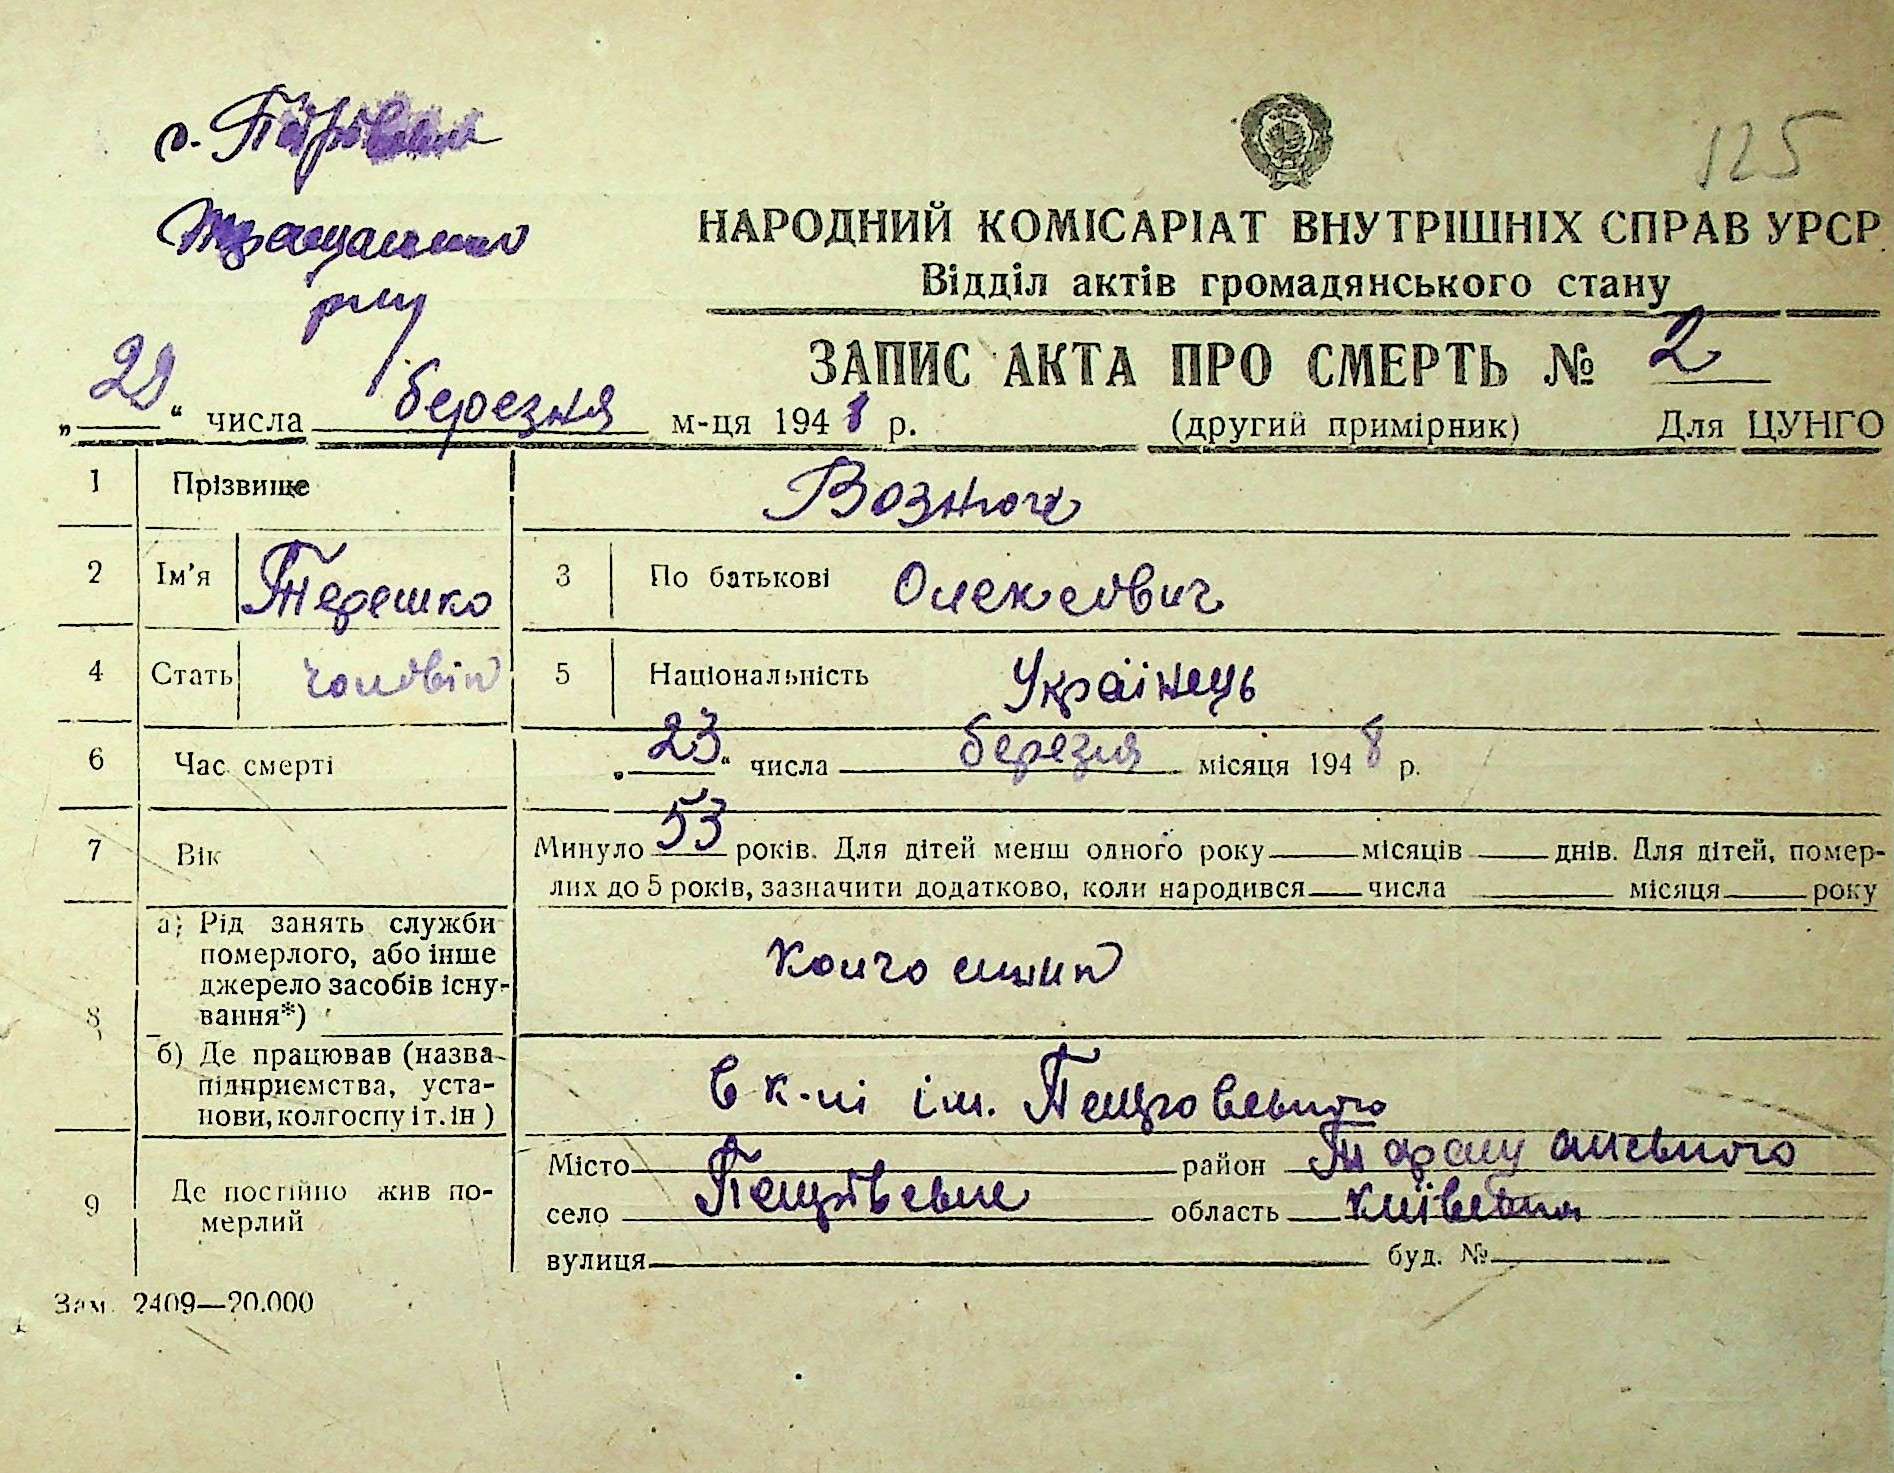 125
НАРОДНИЙ КОМІСАРІАТ ВНУТРІШНІХ СПРАВ УРСР
Відділ актів громадянського стану
ЗАПИС АКТА ПРО СМЕРТЬ № 2
„ “ числа березня м-ця 194 р.
(другий примірник) Для ЦУНГО
1 Прізвище
2 Ім'я Терешко 3 По батькові Олексієвич
4 Стать чоловік 5 Національність Українець
6 Час смерті „23“ числа березня місяця 1948 р.
7 Вік Минуло 53 років. Для дітей менш одного року місяців днів. Для дітей, помер-
лих до 5 років, зазначити додатково, коли народився числа місяця року
8 а) Рід занять служби
померлого, або інше
джерело засобів існу-
вання*)
б) Де працював (назва
підприємства, уста-
нови, колгоспу і т. ін)
в к-пі ім. Петровського
9 Де постійно жив по-
мерлий
Місто район
село область
вулиця буд. №
Зам. 2409—20.000